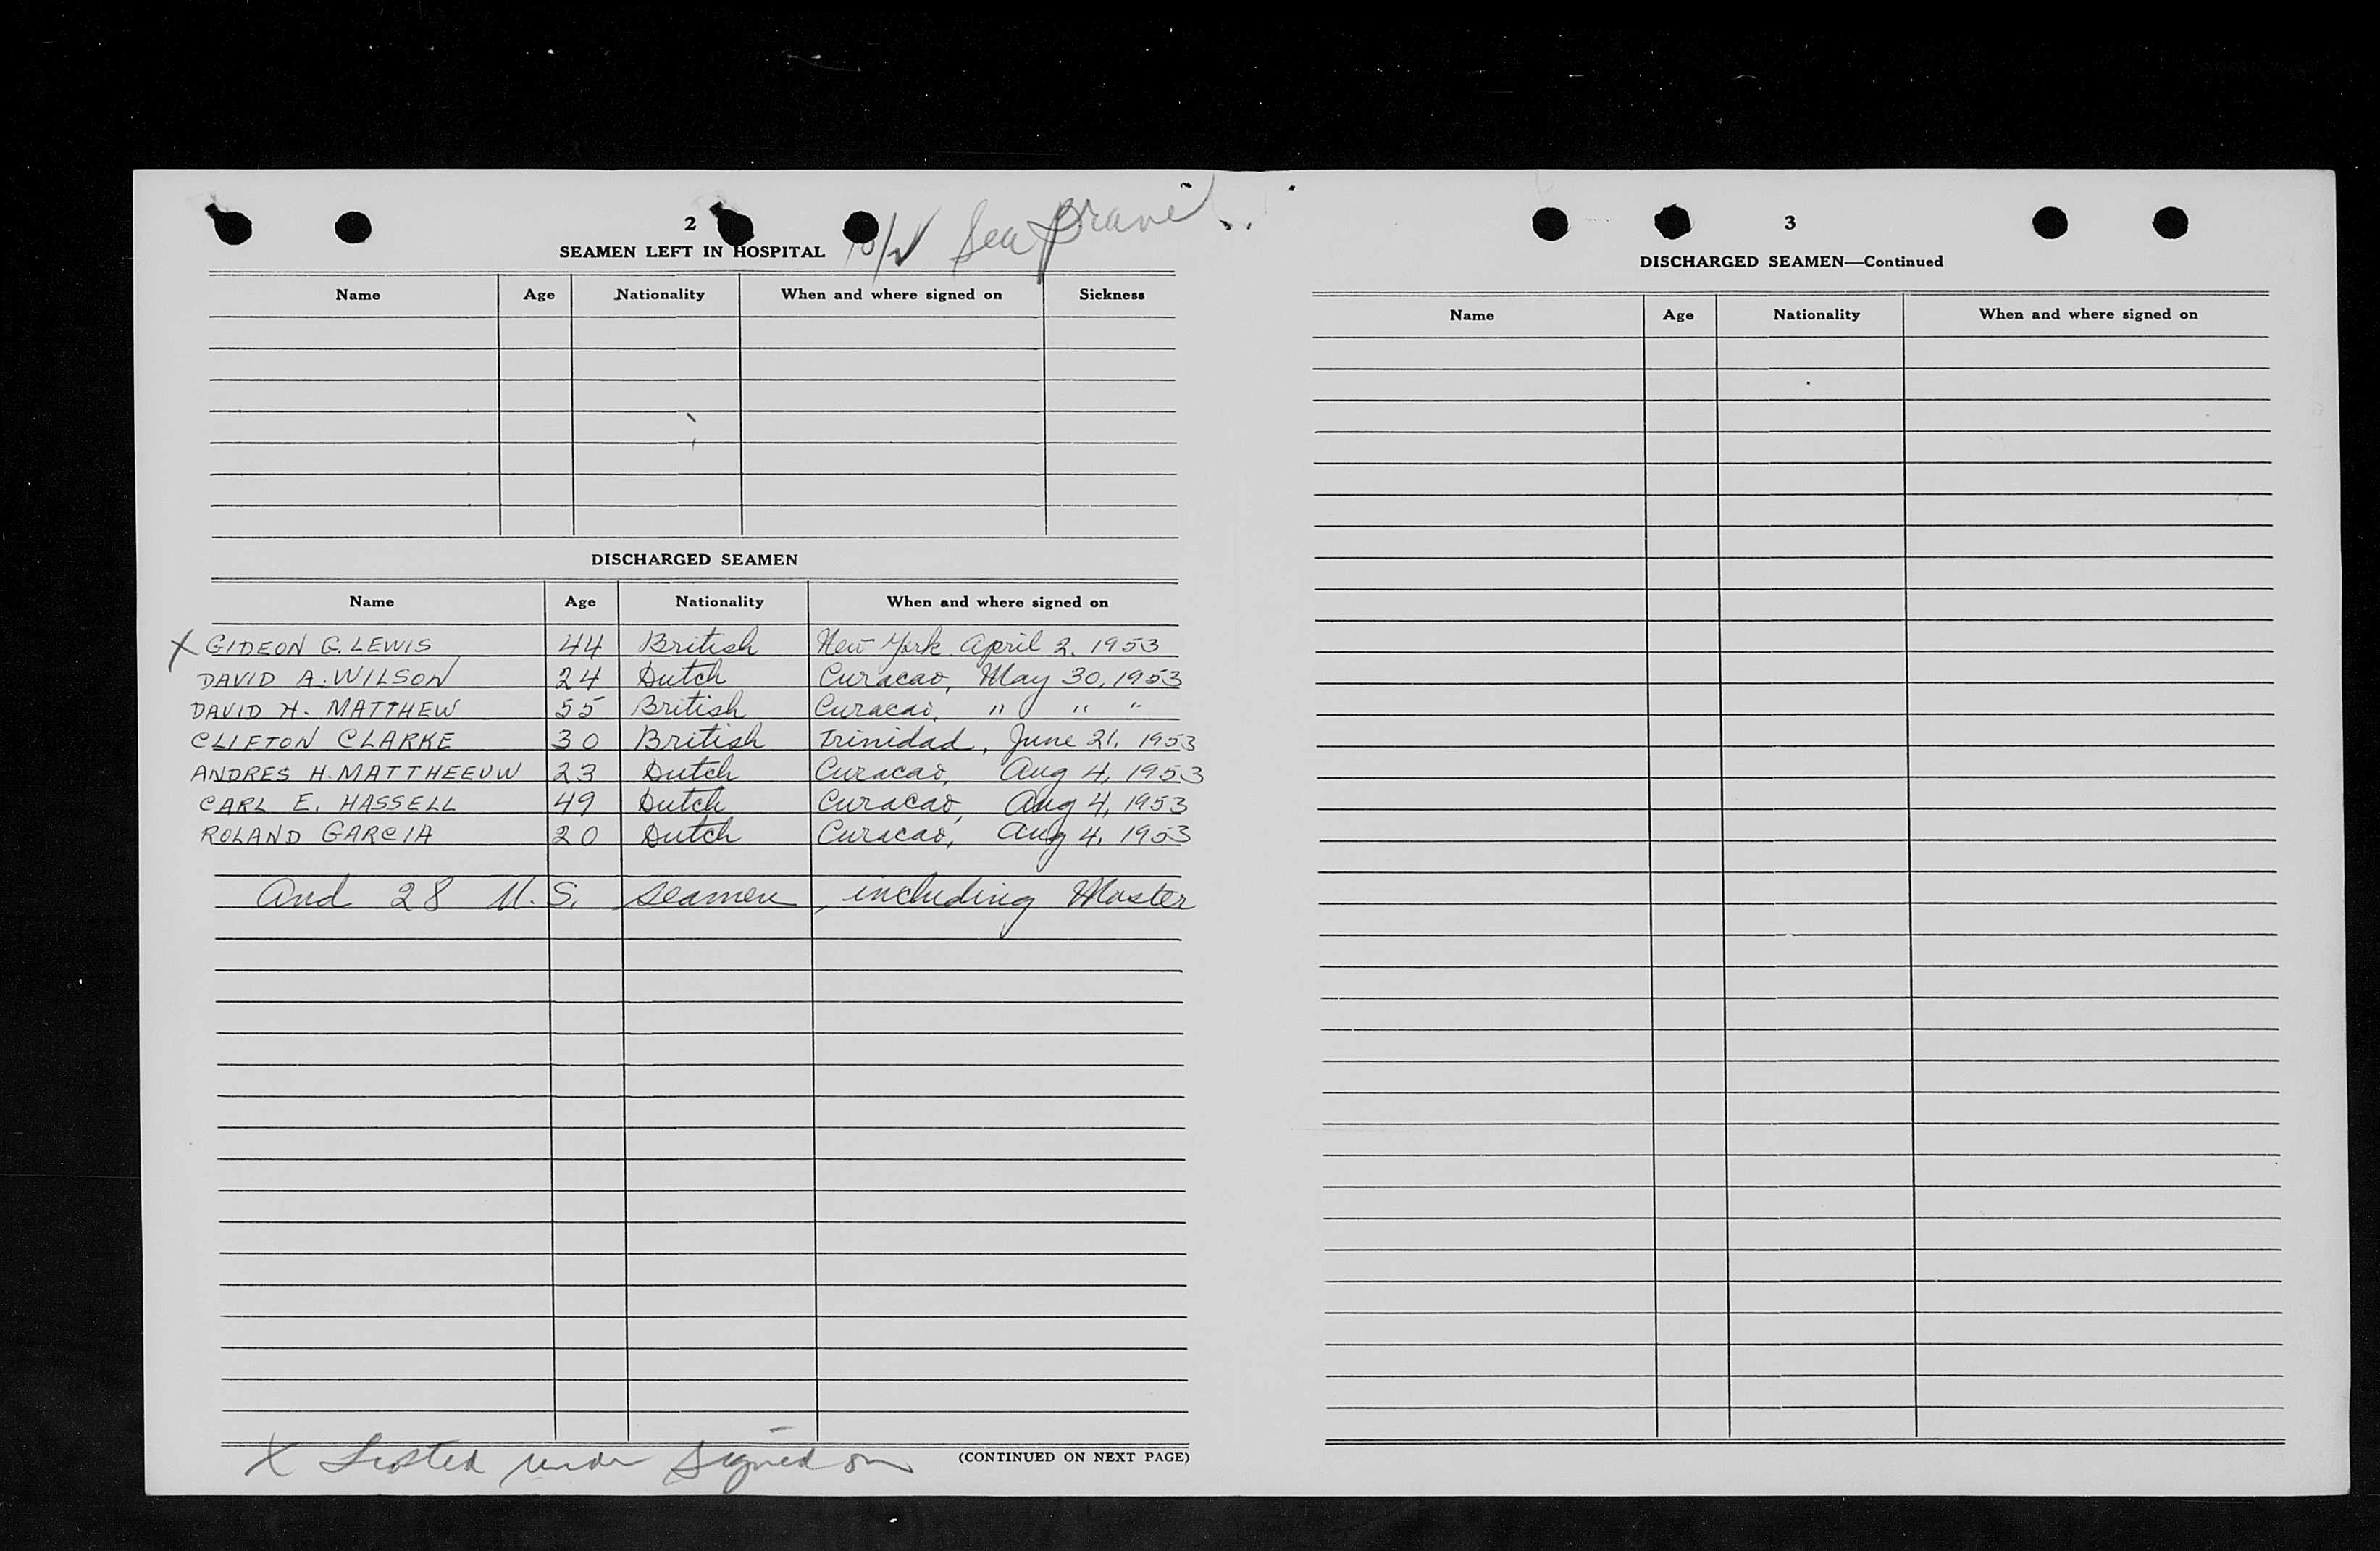 2
SEAMEN LEFT IN HOSPITAL
Sea Brave
Name Age Nationality When and where signed on Sickness
DISCHARGED SEAMEN
Name Age Nationality When and where signed on
X GIDEON G. LEWIS 44 British New York April 2. 1953
DAVID A. WILSON 24 Dutch Curacao, May 30, 1953
DAVID H. MATTHEW 55 British Curacao, " " "
CLIFTON CLARKE 30 British Trinidad, June 21, 1953
ANDRES H. MATTHEEUW 23 Dutch Curacao, Aug 4, 1953
CARL E. HASSELL 49 Dutch Curacao, Aug 4, 1953
ROLAND GARCIA 20 Dutch Curacao, Aug 4, 1953
And 28 U.S. seamen, including Master
X Listed under signed on
(CONTINUED ON NEXT PAGE)
3
DISCHARGED SEAMEN—Continued
Name Age Nationality When and where signed on